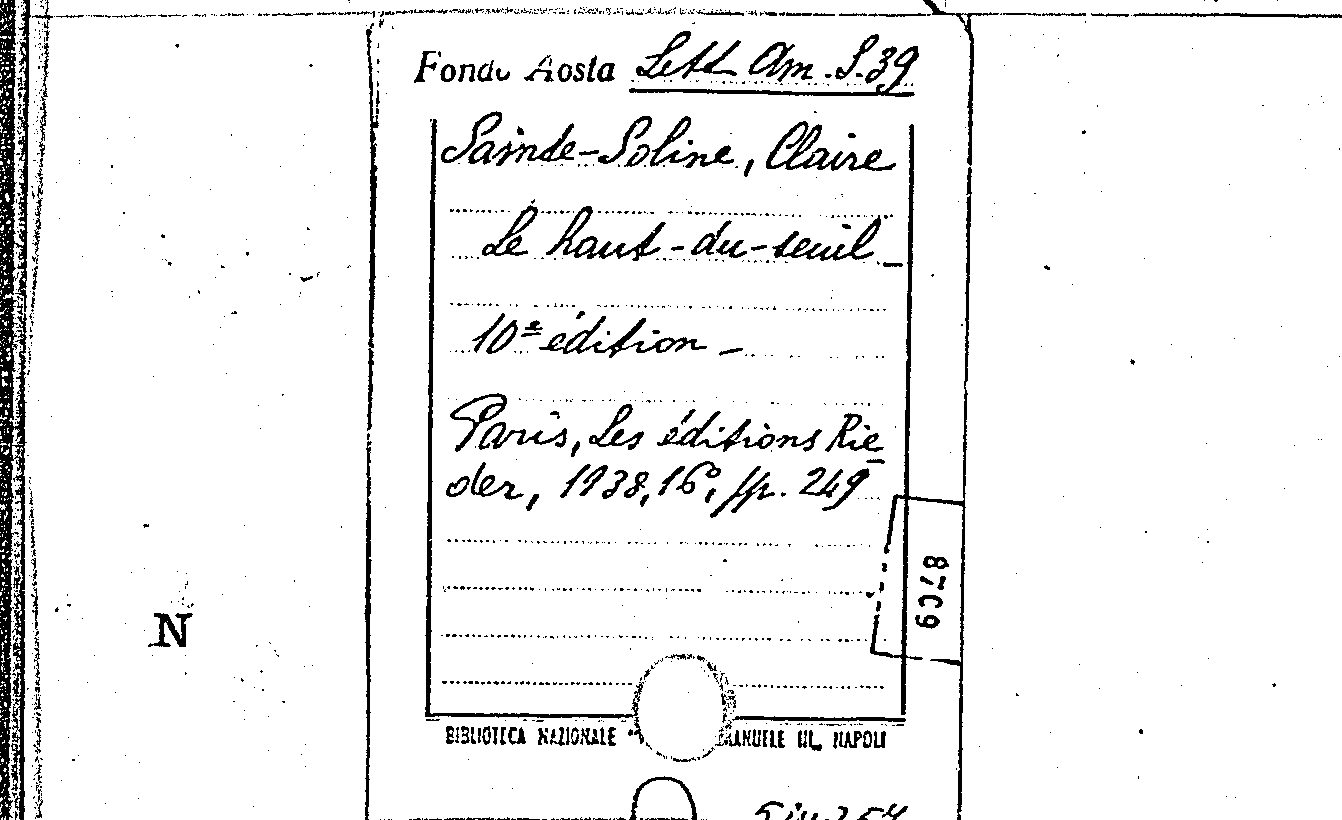 Fondo Aosta Lett Am. S.39
Sainte-Soline, Claire
Le haut-du-seuil_
10ᵉ édition -
Paris, Les éditions Rie
der, 1938, 16°, pp. 249
N
BIBLIOTECA NAZIONALE EMANUELE III, NAPOLI